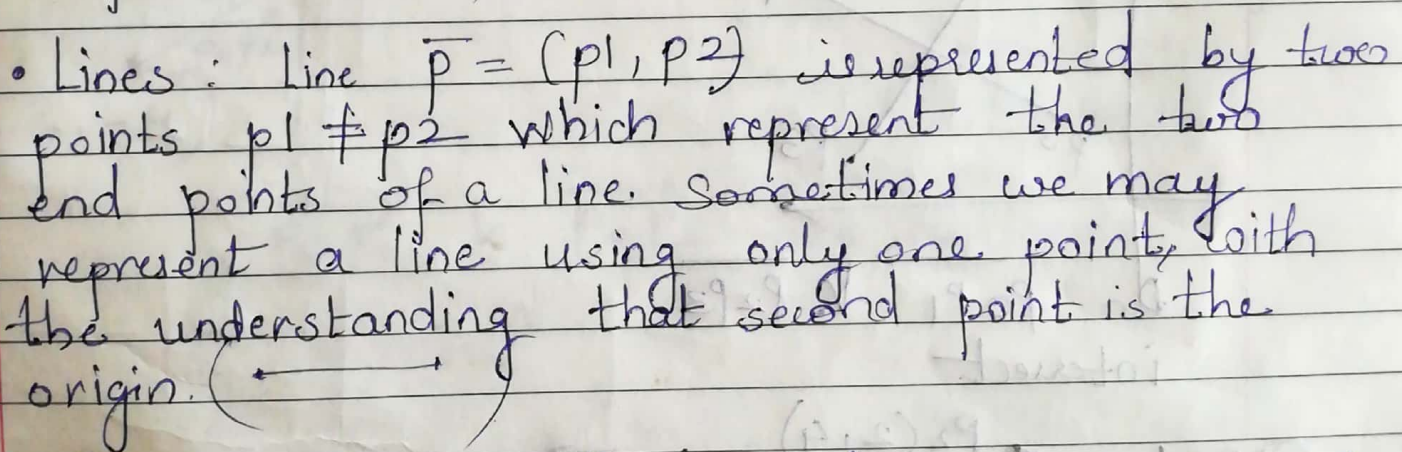 • Lines : Line p̅ = (p1, p2) is represented by two
points p1 ≠ p2 which represent the two
end points of a line. Sometimes we may
represent a line using only one point, with
the understanding that second point is the
origin. ( )